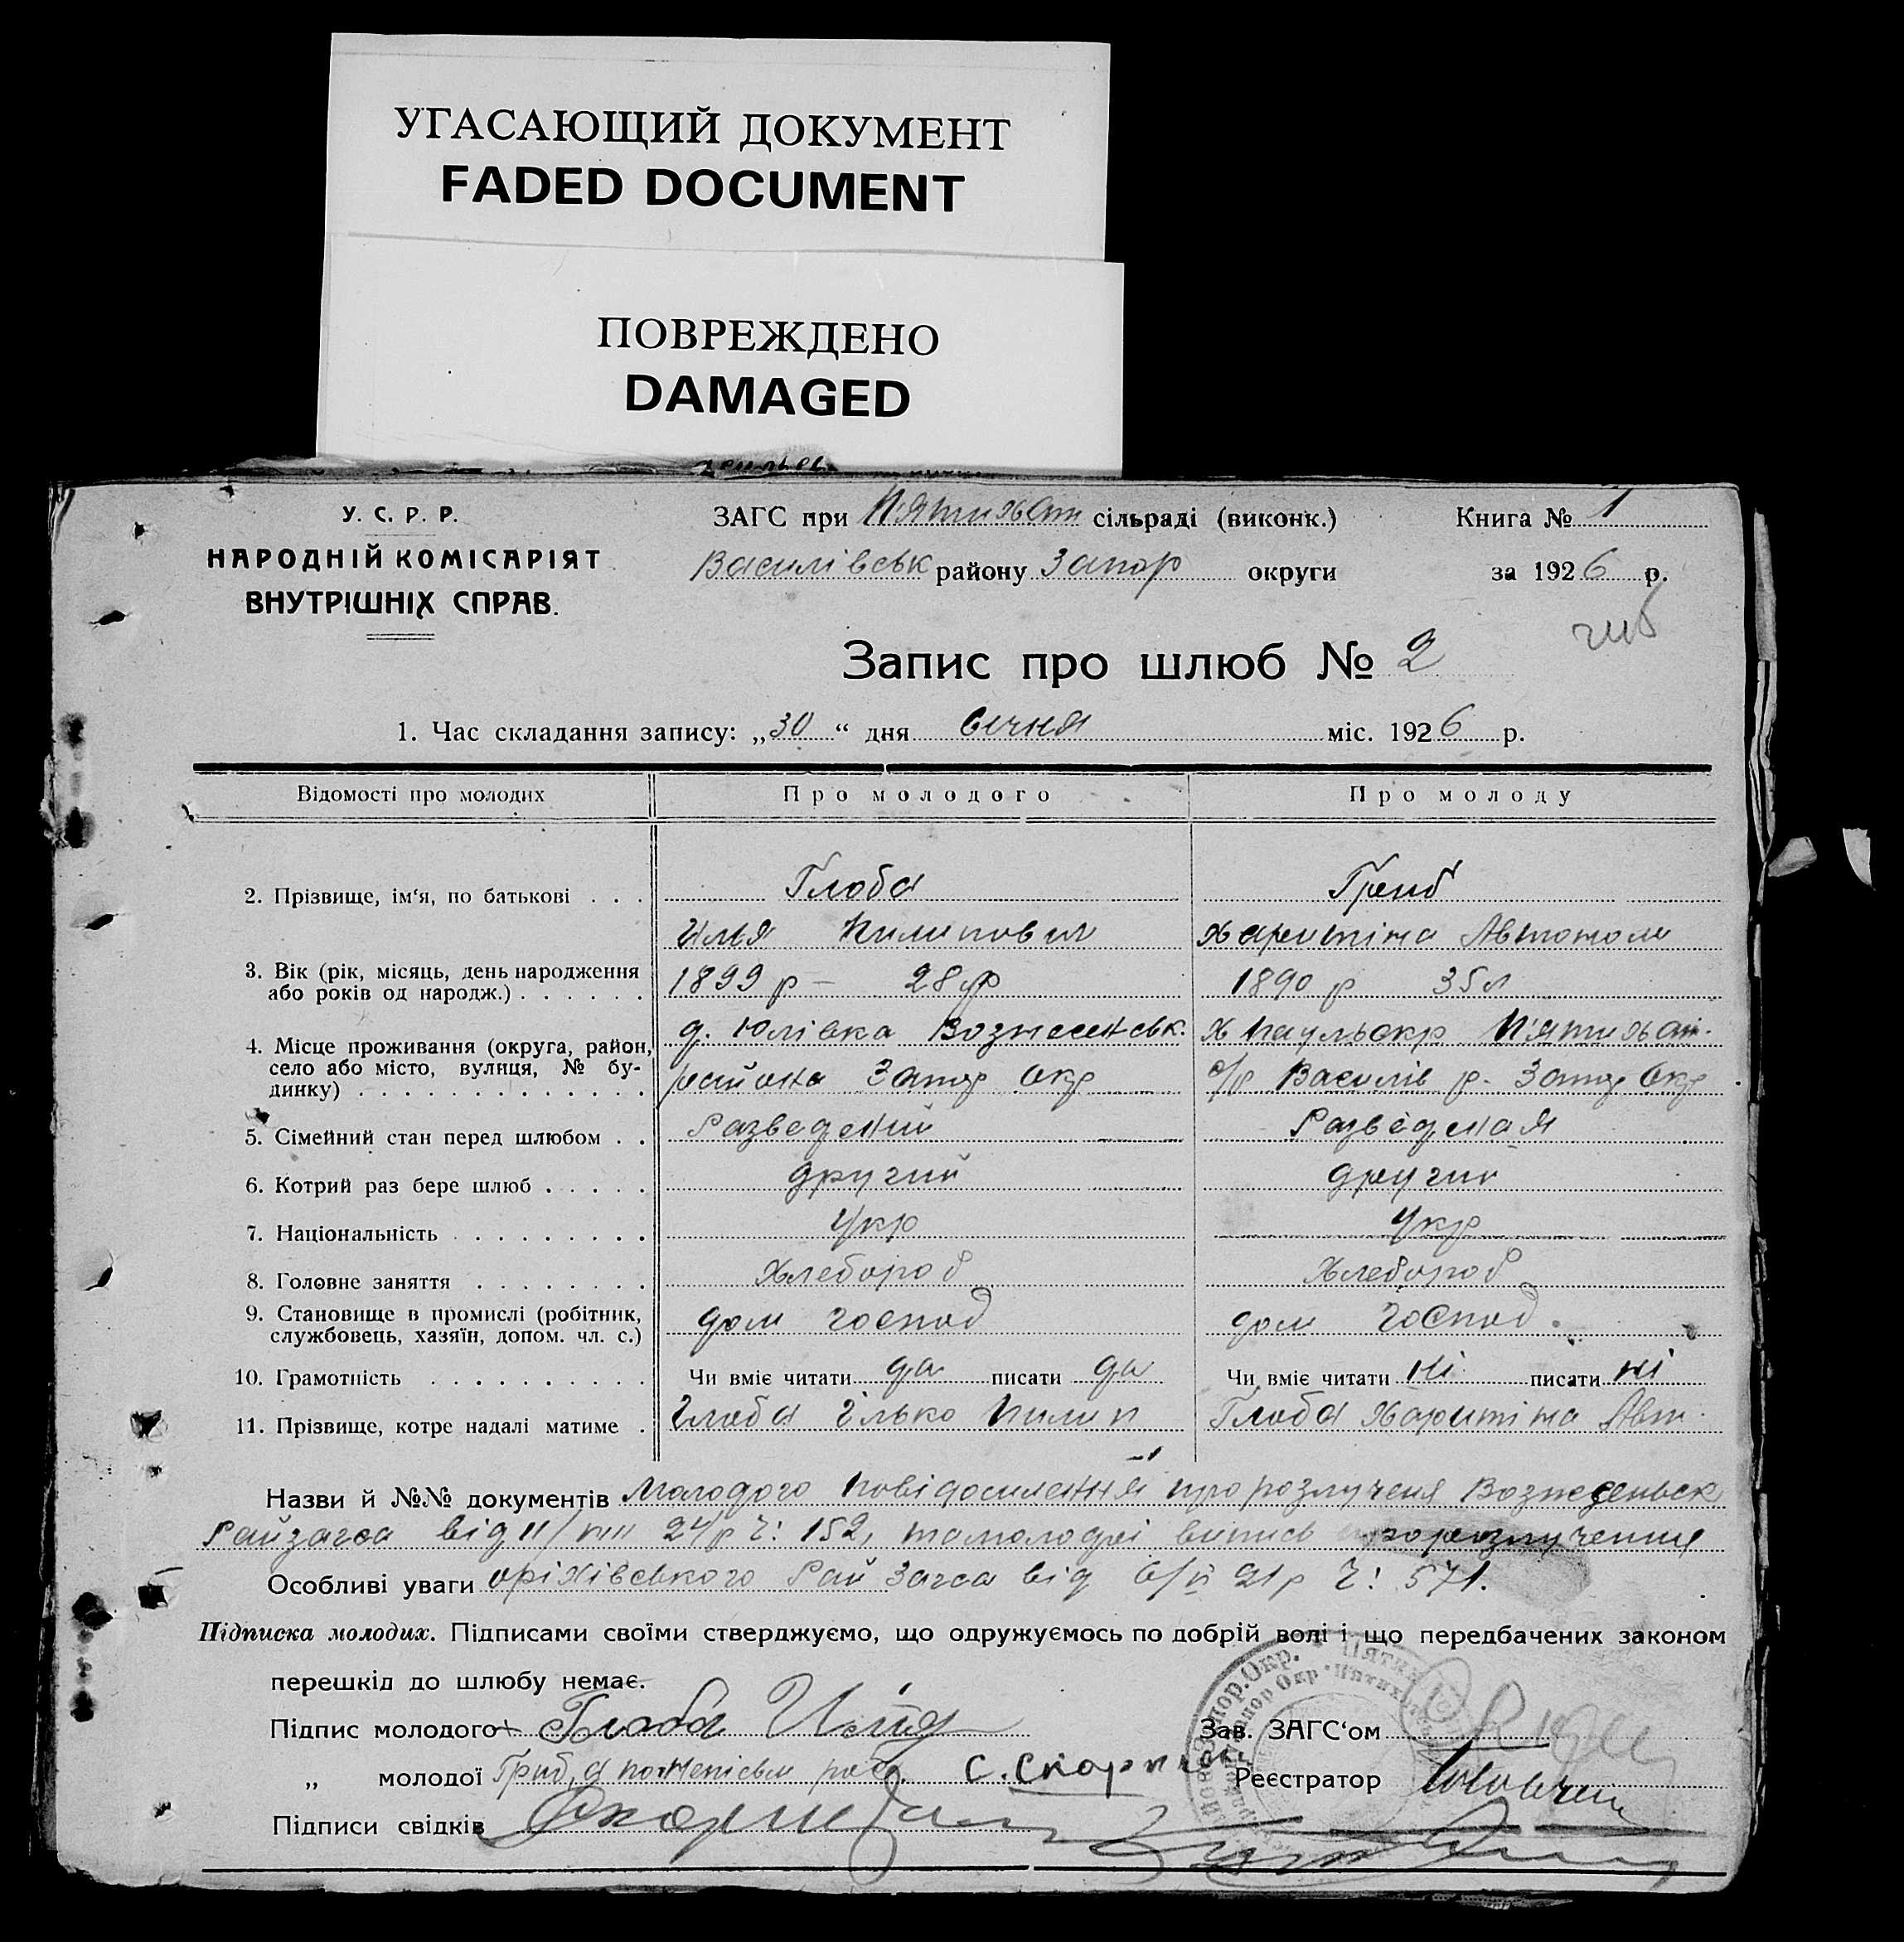 УГАСАЮЩИЙ ДОКУМЕНТ
FADED DOCUMENT
ПОВРЕЖДЕНО
DAMAGED
У. С. Р. Р.
НАРОДНІЙ КОМІСАРІЯТ
ВНУТРІШНІХ СПРАВ.
ЗАГС при П'ятихат сільраді (виконк.)
Василівськ району Запор округи
Книга № 1
за 1926 р.
Запис про шлюб № 2
1. Час складання запису: „30“ дня Січня міс. 1926 р.
Відомості про молодих Про молодого Про молоду
2. Прізвище, ім‘я, по батькові . . . Глоба Гриб
Илья Пилипович Харитіна Автоном
3. Вік (рік, місяць, день народження 1899 р – 28 р 1890 р 35 л
або років од народж.) . . . . . .
4. Місце проживання (округа, район, д. Юлівка Вознесенськ. х Паульокр П'ятихат.
село або місто, вулиця, № бу- района Запор окр с/р Василів р. Запор Окр.
динку) . . . . . . . . . . . . .
5. Сімейний стан перед шлюбом . . Разведений Разведеная
6. Котрий раз бере шлюб . . . . . другий другий
7. Національність . . . . . . . . . Укр Укр
8. Головне заняття . . . . . . . . Хлебороб Хлебороб
9. Становище в промислі (робітник, дом господ дом господ.
службовець, хазяїн, допом. чл. с.)
10. Грамотність . . . . . . . . . . Чи вміє читати да писати да Чи вміє читати ні писати ні
11. Прізвище, котре надалі матиме . Глоба Ілько Пилип Глоба Харитіна Авт.
Назви й №№ документів Молодого повідомлення про розлученя Вознесенськ
Райзагса від 24 р Ч: 152, та молодої випись про розлучення
Особливі уваги оріхівського Рай Загса від 21 р Ч: 571.
Підписка молодих. Підписами своїми стверджуємо, що одружуємось по добрій волі і що передбачених законом
перешкід до шлюбу немає.
Підпис молодого Глоба Зав. ЗАГС‘ом
„ молодої Гриб, а С. Скорп Реєстратор
Підписи свідків